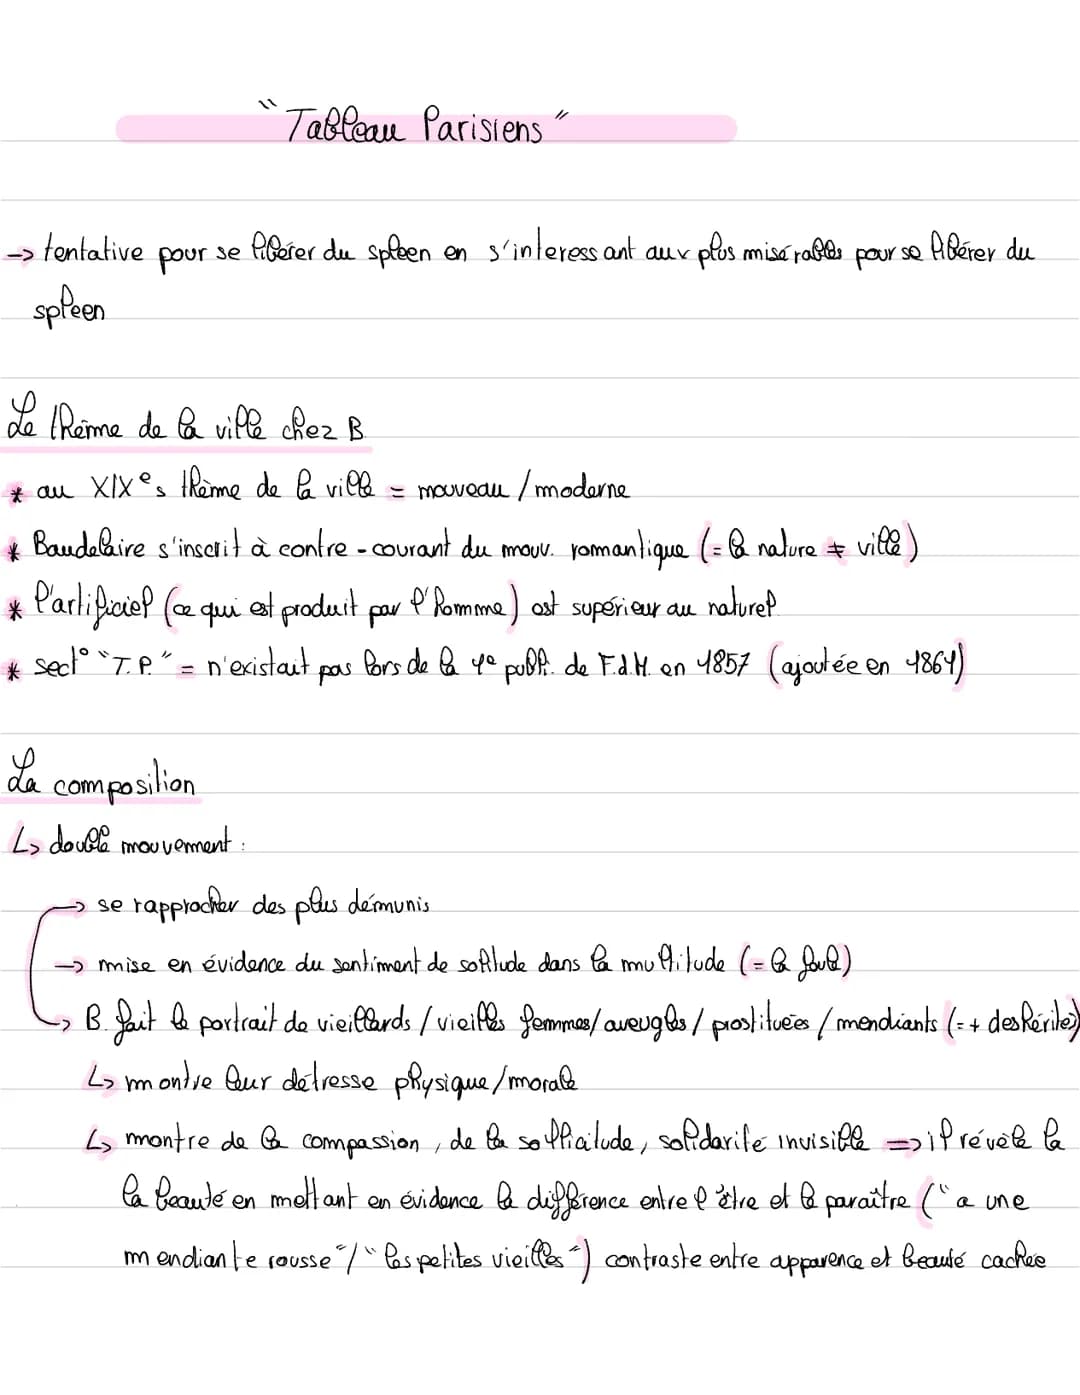 "Tableau Parisiens"
-> tentative pour se libérer du spleen en s'interessant aux plus misérables pour se libérer du
spleen
Le thème de la ville chez B.
* au XIXe s thème de la ville = nouveau / moderne
* Baudelaire s'inscrit à contre-courant du mouv. romantique (= la nature ≠ ville)
* l'artificiel (ce qui est produit par l'homme) est supérieur au naturel
* sect° "T.P." = n'existait pas lors de la 1e publi. de F.d.M. en 1857 (ajoutée en 1861)
La composition
↳ double mouvement :
-> se rapprocher des plus démunis
-> mise en évidence du sentiment de solitude dans la multitude (= la foule)
-> B. fait le portrait de vieillards / vieilles femmes / aveugles / prostituées / mendiants (= + déshérités)
↳ montre leur détresse physique / morale
↳ montre de la compassion, de la sollicitude, solidarité invisible => il révèle la
la beauté en mettant en évidence la différence entre l'être et le paraître ("a une
mendiante rousse" / "les petites vieilles") contraste entre apparence et beauté cachée